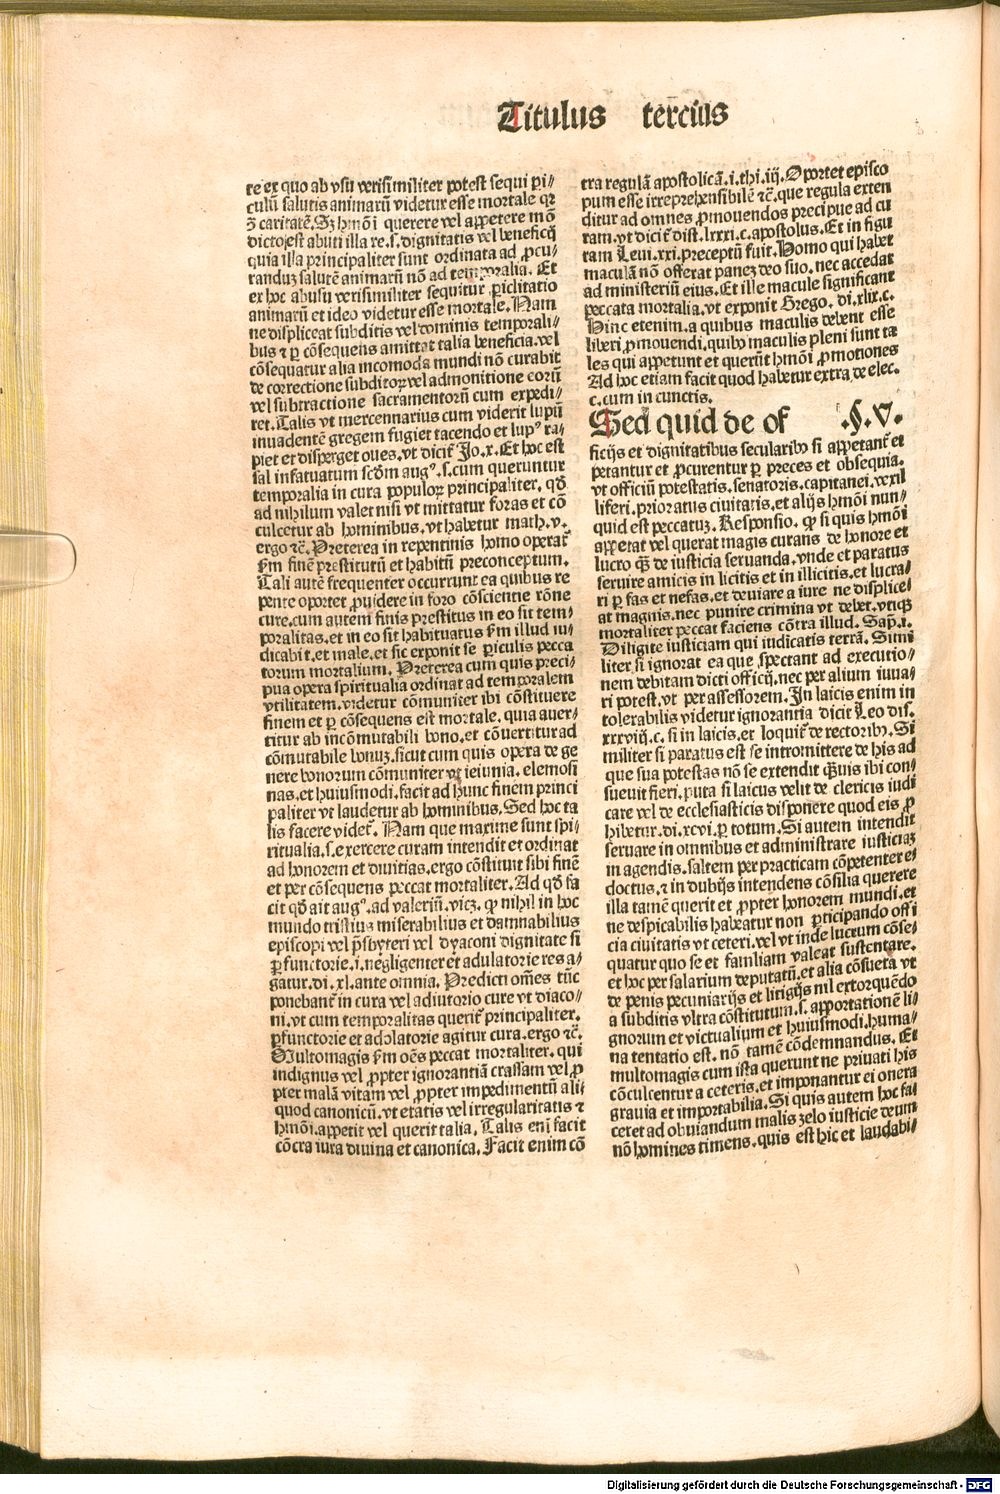 Titulus tercius
re ex quo ab vsu verisimiliter potest sequi pi-
culũ salutis animarũ videtur esse mortale qꝛ
ꝯ̃ caritatẽ. Sꝫ hmõi querere vel appetere mõ
dicto est abuti illa re. s. dignitatis vel beneficij
quia illa principaliter sunt ordinata ad ꝓcu-
randuꝫ salutẽ animarũ nõ ad temporalia. Et
ex hoc abusu verisimiliter sequitur ꝑiclitatio
animarũ et ideo videtur esse mortale. Nam
ne displiceat subditis vel dominis temporali-
bus ⁊ ꝑ cõsequens amittat talia beneficia. vel
cõsequatur alia incomoda mundi nõ curabit
de correctione subditoꝝ vel admonitione eorũ
vel subtractione sacramentorũ cum expedi-
ret. Talis vt mercennarius cum viderit lupũ
inuadentẽ gregem fugiet tacendo et lupꝰ ra-
piet et disperget oues. vt dicit̃ Jo. x. Et hoc est
sal infatuatum scd̃m augꝰ. s. cum queruntur
temporalia in cura populoꝝ principaliter. qd̃
ad nihilum valet nisi vt mittatur foras et cõ
culcetur ab hominibus. vt habetur math. v.
ergo ⁊c̃. Preterea in repentinis homo operat̃
ẜm finẽ prestitutũ et habitũ preconceptum.
Tali autẽ frequenter occurrunt ea quibus re
pente oportet ꝓuidere in foro cõscientie rõne
cure. cum autem finis prestitus in eo sit tem-
poralitas. et in eo sit habituatus ẜm illud iu-
dicabit. et male. et sic exponit se ꝑiculis pecca
torum mortalium. Preterea cum quis preci-
pua opera spiritualia ordinat ad temporalem
vtilitatem. videtur cõmuniter ibi cõstituere
finem et ꝑ cõsequens est mortale. quia auer-
titur ab incõmutabili bono. et cõuertitur ad
cõmutabile bonuꝫ. sicut cum quis opera de ge
nere bonorum cõmuniter vt ieiunia. elemosi
nas. et huiusmodi. facit ad hunc finem princi
paliter vt laudetur ab hominibus. Sed hoc ta
lis facere videt̃. Nam que maxime sunt spi-
ritualia. s. exercere curam intendit et ordinat
ad honorem et diuitias. ergo cõstituit sibi finẽ
et per cõsequens peccat mortaliter. Ad qd̃ fa
cit qd̃ ait augꝰ. ad valeriũ. vicꝫ. ꝙ nihil in hoc
mundo tristius miserabilius et damnabilius
episcopi vel p̃sbyteri vel dyaconi dignitate si
ꝑfunctorie. i. negligenter et adulatorie res a-
gatur. di. xl. ante omnia. Predicti om̃es tũc
ponebant̃ in cura vel adiutorio cure vt diaco-
ni. vt cum temporalitas querit̃ principaliter.
ꝑfunctorie et adolatorie agitur cura. ergo ⁊c̃.
Multomagis ẜm oẽs peccat mortaliter. qui
indignus vel ꝓpter ignorantiã crassam vel ꝓ
pter malã vitam vel ꝓpter impedimentũ ali-
quod canonicũ. vt etatis vel irregularitatis ⁊
hmõi. appetit vel querit talia. Talis eni facit
cõtra iura diuina et canonica. Facit enim cõ
tra regulã apostolicã. i. thi. iij. Oportet episco
pum esse irreprehensibilẽ ⁊c̃. que regula exten
ditur ad omnes ꝓmouendos precipue ad cu
ram. vt dicit̃ dist. lxxxi. c. apostolus. Et in figu
ram Leui. xxi. preceptũ fuit. Homo qui habet
maculã nõ offerat panes deo suo. nec accedat
ad ministeriũ eius. Et ille macule significant
peccata mortalia. vt exponit Grego. di. xlix. c.
Hinc etenim. a quibus maculis debent esse
liberi ꝓmouendi. quibꝰ maculis pleni sunt ta
les qui appetunt et querũt hmõi ꝓmotiones
Ad hoc etiam facit quod habetur extra de elec.
c. cum in cunctis.
Sed quid de of §. V.
ficijs et dignitatibus secularibꝰ si appetant̃ et
petantur et ꝓcurentur ꝑ preces et obsequia.
vt officiũ potestatis. senatoris. capitanei. vexil
liferi. prioratus ciuitatis. et alijs hmõi nun-
quid est peccatuꝫ. Responsio. ꝙ si quis hmõi
appetat vel querat magis curans de honore et
lucro q̃ꝫ de iusticia seruanda. vnde et paratus
seruire amicis in licitis et in illicitis. et lucra-
ri ꝑ fas et nefas. et deuiare a iure ne displice-
at magnis. nec punire crimina vt debet. vtiqꝫ
mortaliter peccat faciens cõtra illud. Sap̃. i.
Diligite iusticiam qui iudicatis terrã. Simi
liter si ignorat ea que spectant ad executio-
nem debitam dicti officij. nec per alium iuua-
ri potest. vt per assessorem. In laicis enim in
tolerabilis videtur ignorantia dicit Leo dis.
xxxviij. c. si in laicis. et loquit̃ de rectoribꝰ. Si
militer si paratus est se intromittere de his ad
que sua potestas nõ se extendit q̃ꝫuis ibi con-
sueuit fieri. puta si laicus velit de clericis iudi
care vel de ecclesiasticis disponere quod eis ꝓ
hibetur. di. xcvi. ꝑ totum. Si autem intendit
seruare in omnibus et administrare iusticiaꝫ
in agendis. saltem per practicam cõpetenter e-
doctus. ⁊ in dubijs intendens cõsilia querere
illa tamẽ querit et ꝓpter honorem mundi. et
ne despicabilis habeatur non ꝑticipando offi
cia ciuitatis vt ceteri. vel vt inde lucrum cõse-
quatur quo se et familiam valeat sustentare.
et hoc per salarium deputatũ. et alia cõsueta vt
de penis pecuniarijs et litigijs nil extorquẽdo
a subditis vltra cõstitutum. s. apportationẽ li-
gnorum et victualium et huiusmodi. huma-
na tentatio est. nõ tamẽ cõdemnandus. Et
multomagis cum ista querunt ne priuati his
cõculcentur a ceteris. et imponantur ei onera
grauia et importabilia. Si quis autem hoc fa-
ceret ad obuiandum malis zelo iusticie deum
nõ homines timens. quis est hic et laudabi-
Digitalisierung gefördert durch die Deutsche Forschungsgemeinschaft - DFG